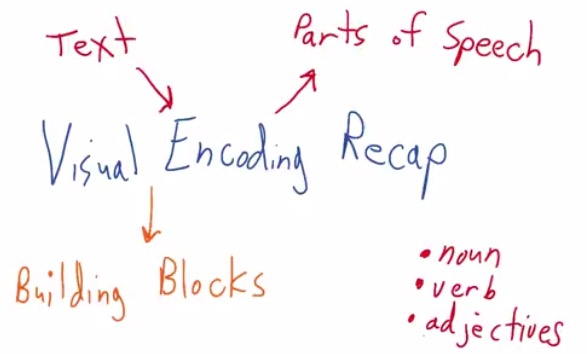 Text
Parts of Speech
Visual Encoding Recap
Building Blocks
• noun
• verb
• adjectives